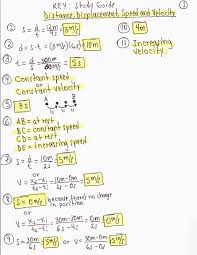 KEY: Study Guide
Distance, Displacement, Speed and Velocity
① S = d/t = 12m/4s = 3m/s
② d = s·t = (3m/s)(6s) = 18m
③ t = d/s = = 5s
④ Constant speed
or
Constant velocity
⑤ 3s
⑥ AB = at rest
BC = constant speed
CD = at rest
DE = increasing speed
⑦ S = d/t = 10m/2s = 5m/s
or
V = = 10m-0m/2s-0s = 5m/s
⑧ S = 0m/s because there's no change
in position.
or
V = = 30m-30m/6s-4s = 0m/2s = 0m/s
⑨ S = 30m/6s = 5m/s or V = 30m-0m/6s-0s = 5m/s
⑩ 4m
⑪ Increasing
velocity.